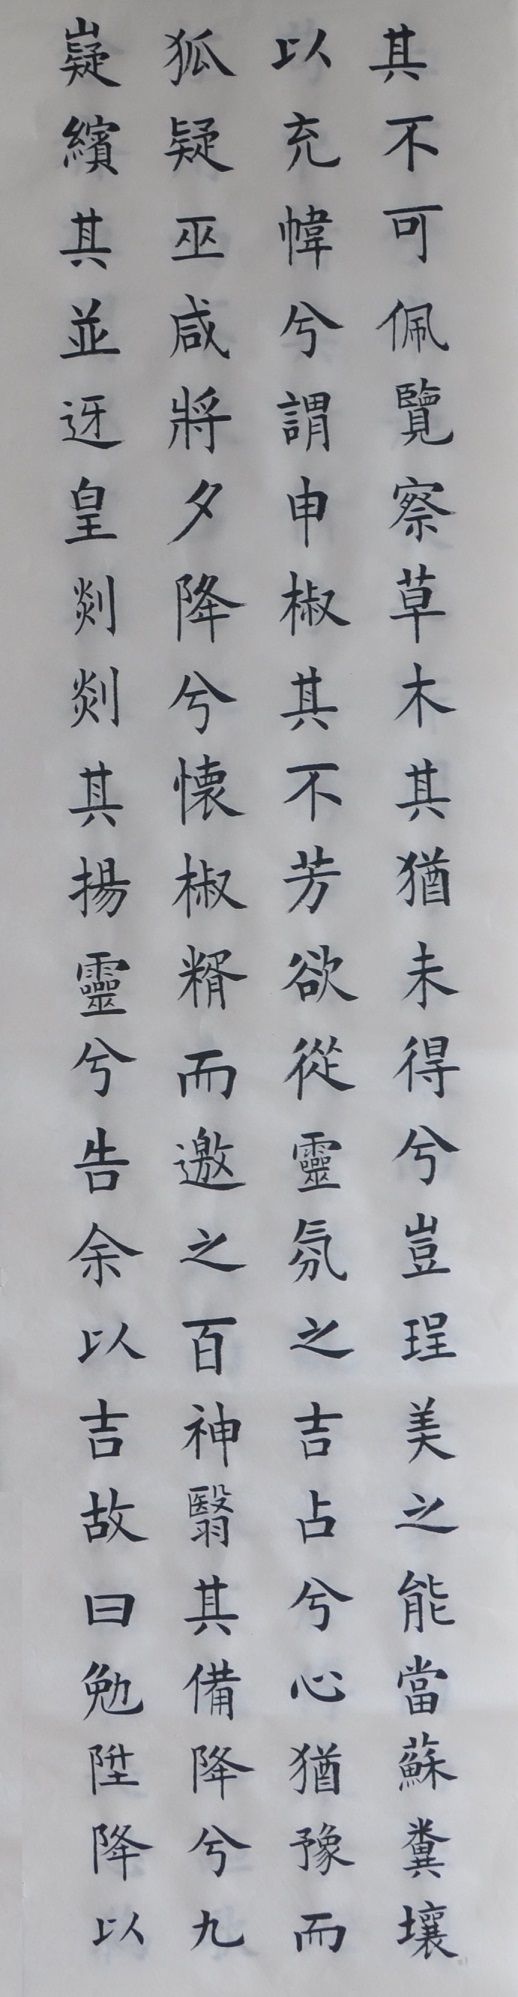 其不可佩覽察草木其猶未得兮豈珵美之能當蘇糞壤
以充幃兮謂申椒其不芳欲從靈氛之吉占兮心猶豫而
狐疑巫咸將夕降兮懐椒糈而邀之百神翳其備降兮九
嶷繽其並迓皇剡剡其揚靈兮告余以吉故曰勉陞降以